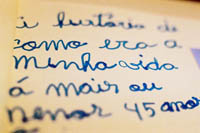 i hustória de
como era a
minha vida
á mais ou
menor 45 anos